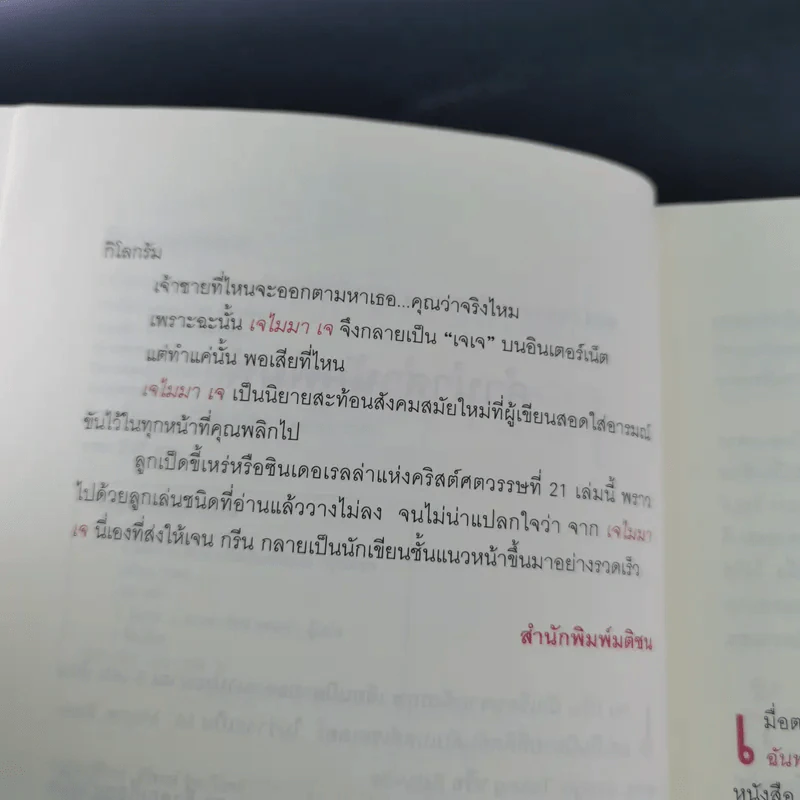 กิโลกรัม
เจ้าชายที่ไหนจะออกตามหาเธอ...คุณว่าจริงไหม
เพราะฉะนั้น เจไมมา เจ จึงกลายเป็น “เจเจ” บนอินเตอร์เน็ต
แต่ทำแค่นั้น พอเสียที่ไหน
เจไมมา เจ เป็นนิยายสะท้อนสังคมสมัยใหม่ที่ผู้เขียนสอดใส่อารมณ์
ขันไว้ในทุกหน้าที่คุณพลิกไป
ลูกเป็ดขี้เหร่หรือซินเดอเรลล่าแห่งคริสต์ศตวรรษที่ 21 เล่มนี้ พราว
ไปด้วยลูกเล่นชนิดที่อ่านแล้ววางไม่ลง จนไม่น่าแปลกใจว่า จาก เจไมมา
เจ นี่เองที่ส่งให้เจน กรีน กลายเป็นนักเขียนชั้นแนวหน้าขึ้นมาอย่างรวดเร็ว
สำนักพิมพ์มติชน
เมื่อต
ฉัน
หนังสือ